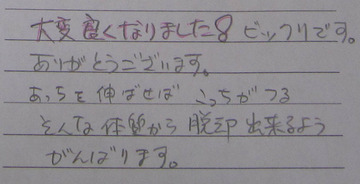 大変良くなりました8 ビックリです。
ありがとうございます。
あっちを伸ばせば こっちがつる
そんな体質から 脱却出来るよう
がんばります。